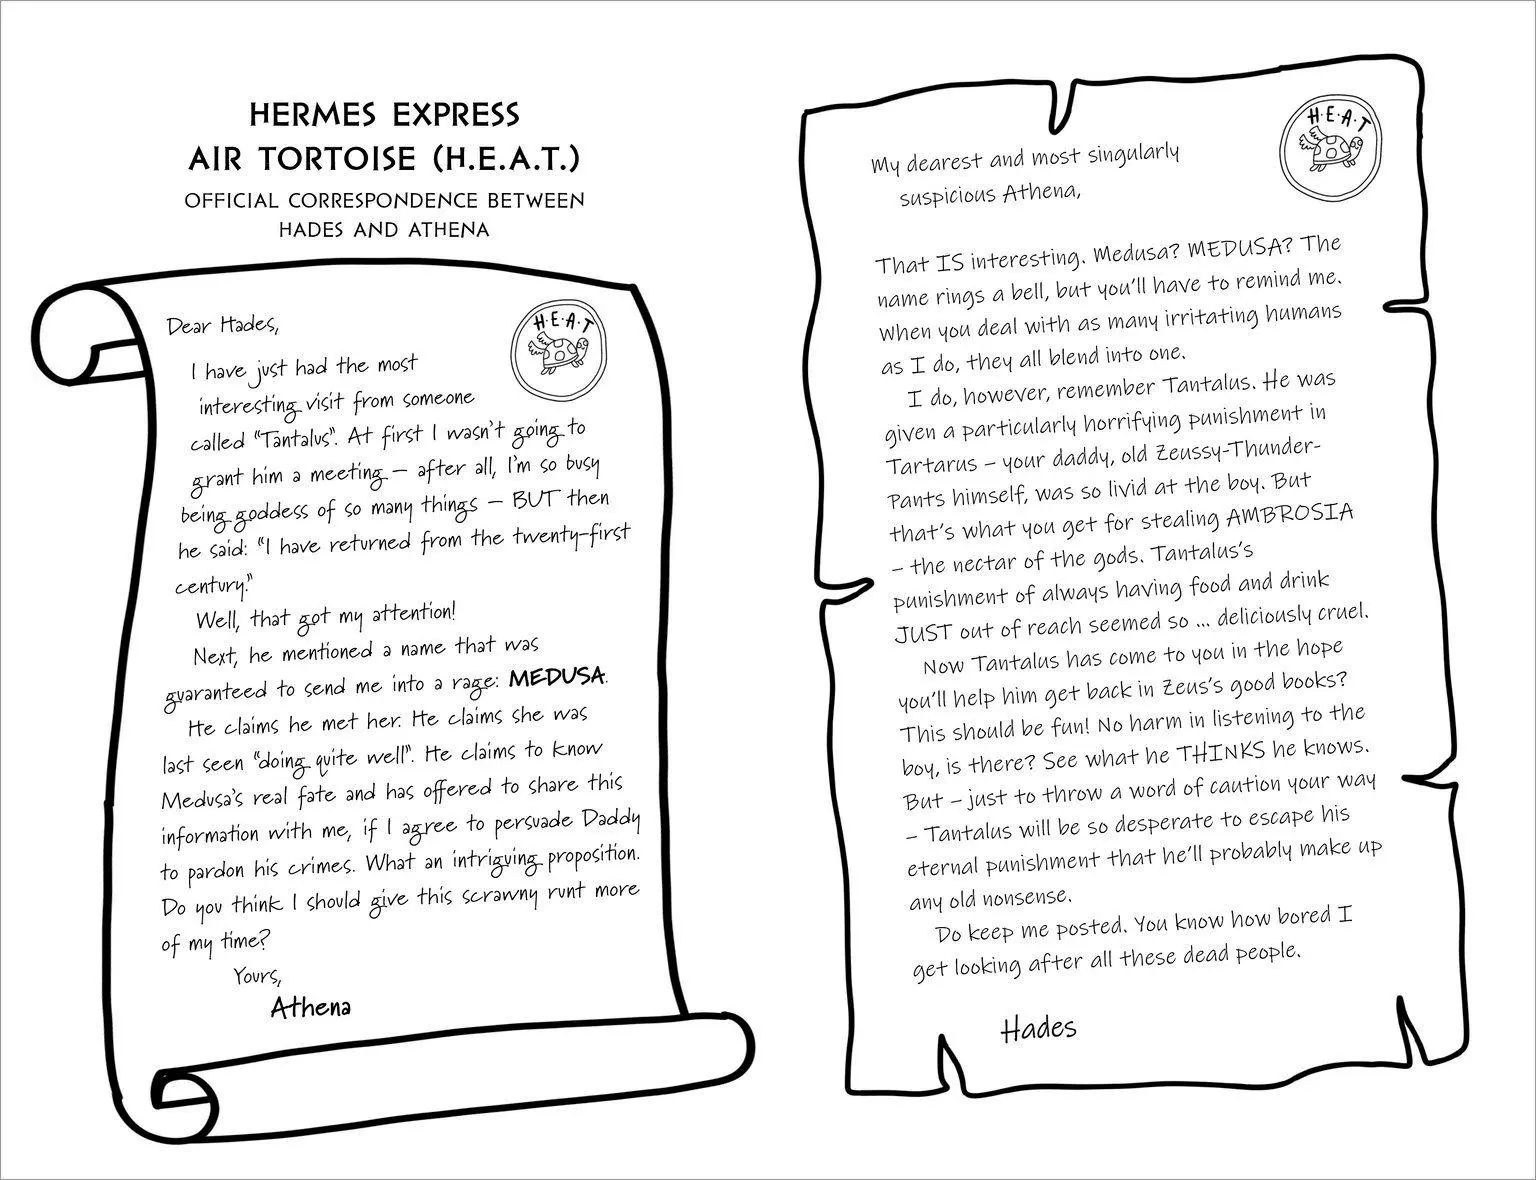 HERMES EXPRESS
AIR TORTOISE (H.E.A.T.)
OFFICIAL CORRESPONDENCE BETWEEN
HADES AND ATHENA
H·E·A·T
Dear Hades,
I have just had the most
interesting visit from someone
called "Tantalus". At first I wasn't going to
grant him a meeting – after all, I'm so busy
being goddess of so many things – BUT then
he said: "I have returned from the twenty-first
century."
Well, that got my attention!
Next, he mentioned a name that was
guaranteed to send me into a rage: MEDUSA.
He claims he met her. He claims she was
last seen "doing quite well". He claims to know
Medusa's real fate and has offered to share this
information with me, if I agree to persuade Daddy
to pardon his crimes. What an intriguing proposition.
Do you think I should give this scrawny runt more
of my time?
Yours,
Athena
H·E·A·T
My dearest and most singularly
suspicious Athena,
That IS interesting. Medusa? MEDUSA? The
name rings a bell, but you'll have to remind me.
When you deal with as many irritating humans
as I do, they all blend into one.
I do, however, remember Tantalus. He was
given a particularly horrifying punishment in
Tartarus – your daddy, old Zeussy-Thunder-
Pants himself, was so livid at the boy. But
that's what you get for stealing AMBROSIA
– the nectar of the gods. Tantalus's
punishment of always having food and drink
JUST out of reach seemed so ... deliciously cruel.
Now Tantalus has come to you in the hope
you'll help him get back in Zeus's good books?
This should be fun! No harm in listening to the
boy, is there? See what he THINKS he knows.
But – just to throw a word of caution your way
– Tantalus will be so desperate to escape his
eternal punishment that he'll probably make up
any old nonsense.
Do keep me posted. You know how bored I
get looking after all these dead people.
Hades